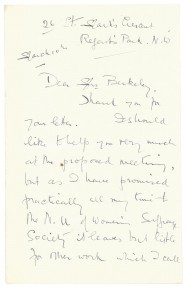 26 St Mark's Crescent
Regent's Park. N.W
Dear Mrs Berkeley,
Thank you for
your letter. I should
like to help you very much
at the proposed meeting,
but as I have promised
practically all my time to
the N.U of Women's Suffrage
Society it leaves but little
for other work which I call